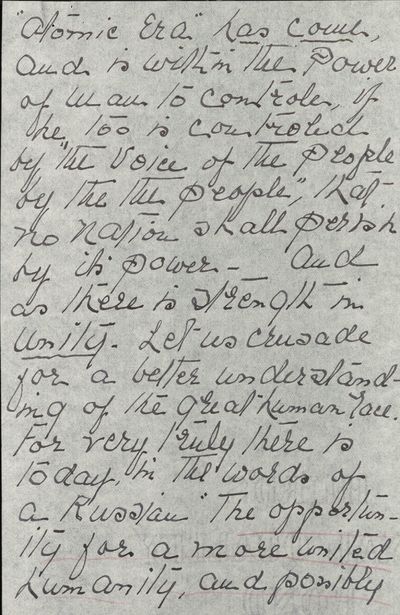 "Atomic Era" has come,
and is within the Power
of Man to controle, if
he, too is controled
by "the Voice of the People
by the the people", that
no nation shall perish
by its power - And
as there is strength in
Unity. Let us crusade
for a better understand-
ing of the great human race.
For very truly there is
today, in the words of
a Russian "The opportun-
ity for a more united
humanity, and possibly